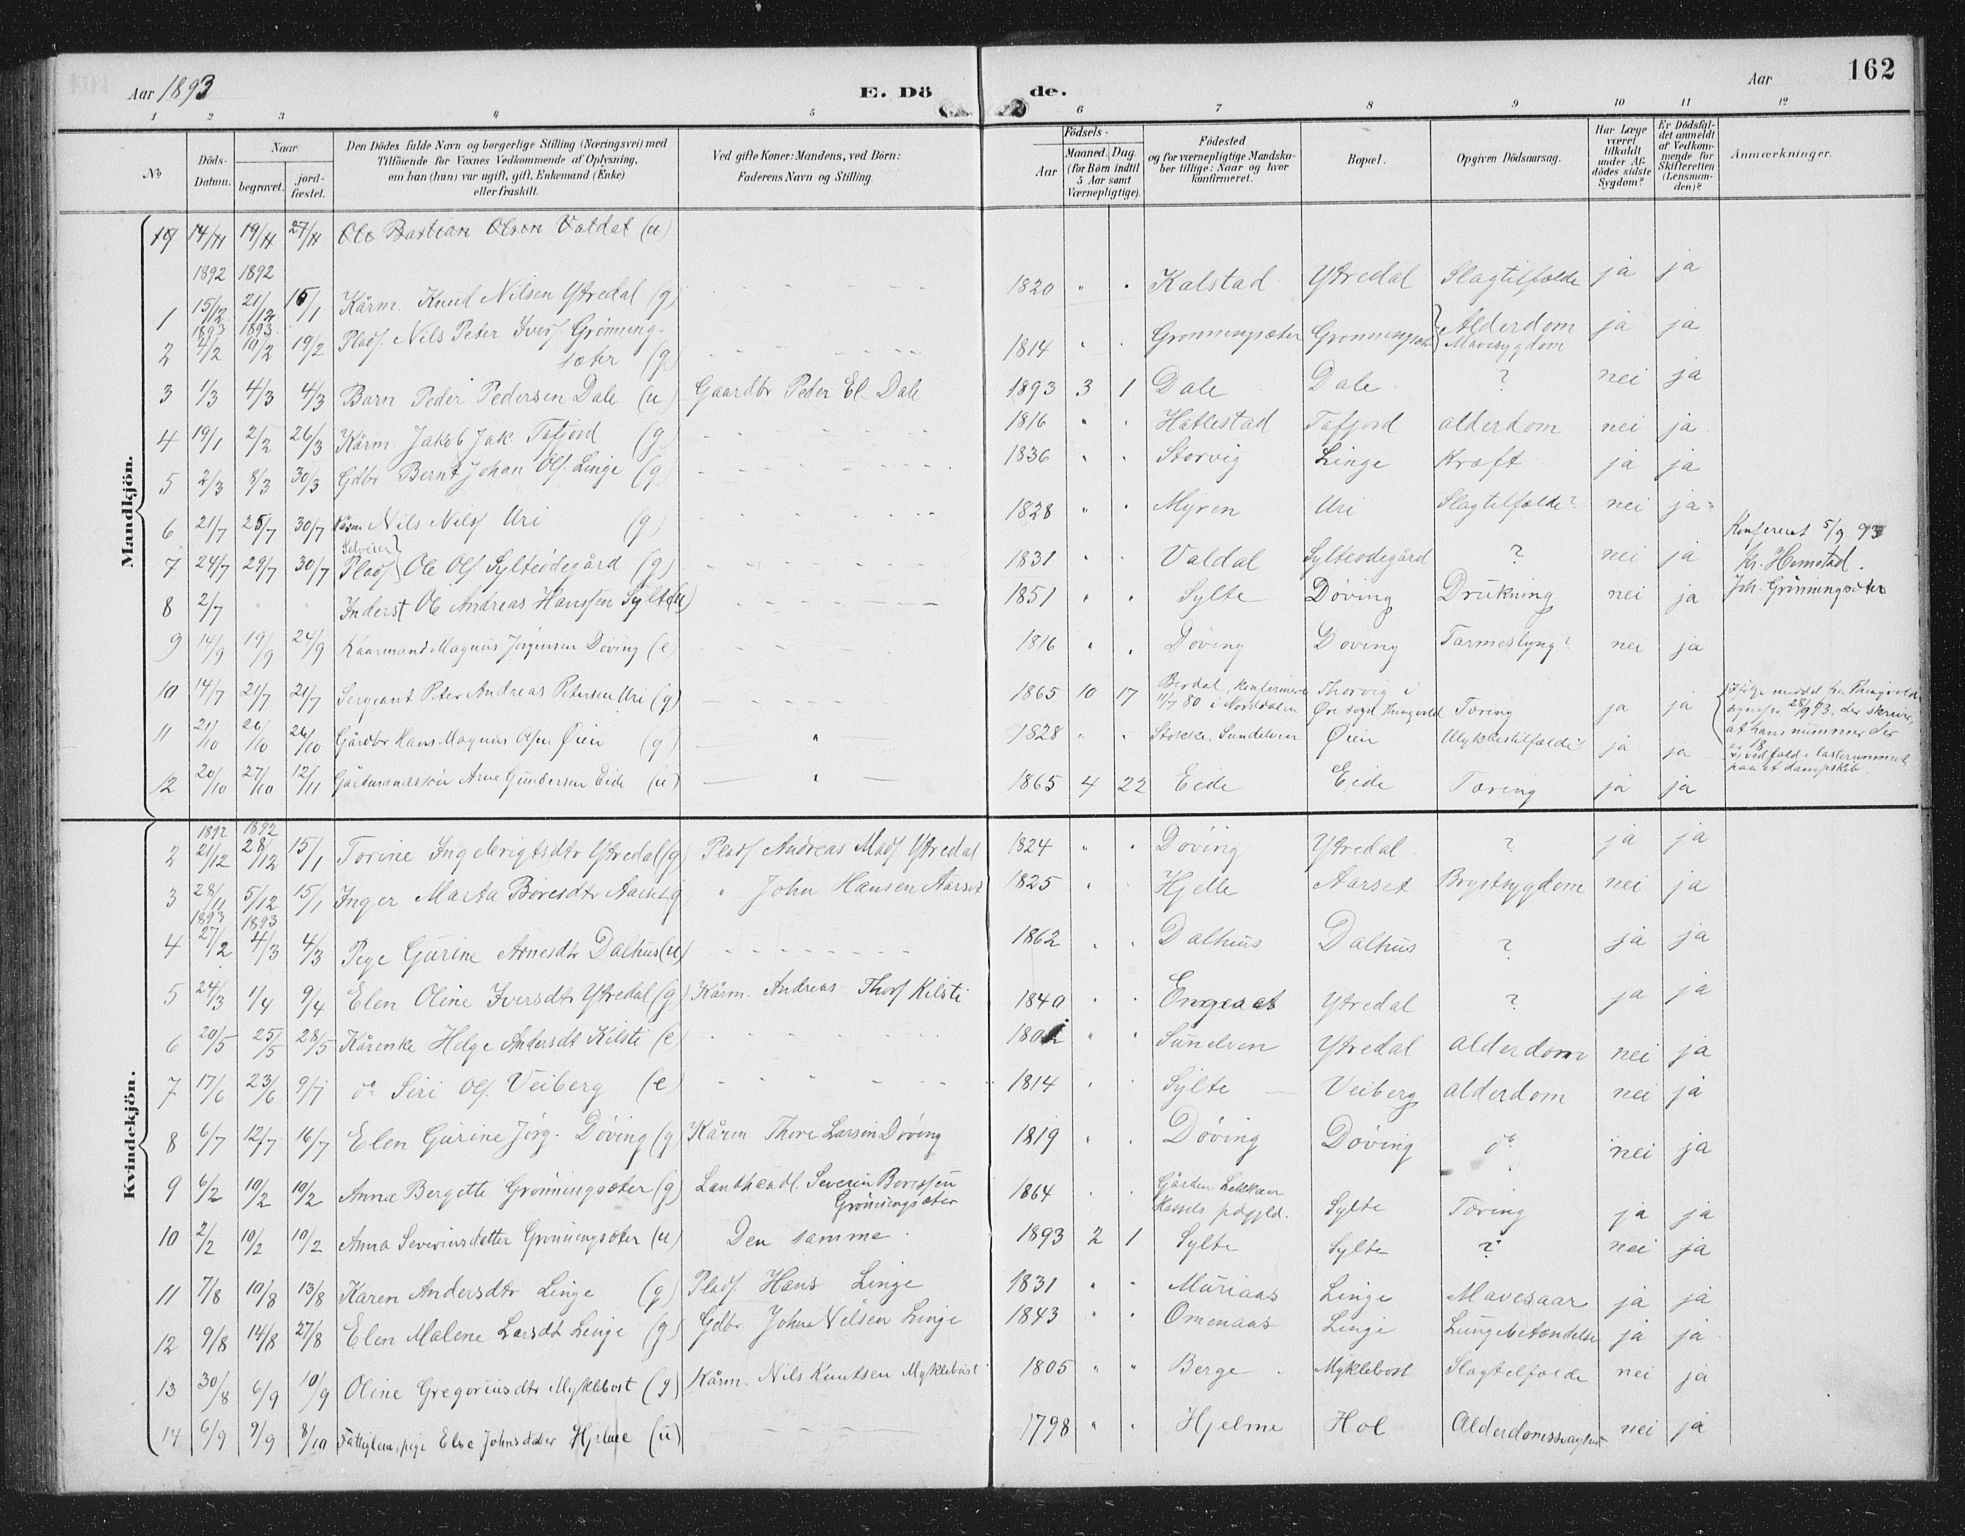 162
Aar 1893 E. Dö de. Aar
1 2 3 4 5 6 7 8 9 10 11 12
No
Döds-Datum.
Naar
begravet.
jord-fæstet.
Den Dödes fulde Navn og borgerlige Stilling (Næringsvei) med
Tilföiende for Voxnes Vedkommende af Oplysning,
om han (hun) var ugift, gift, Enkemand (Enke)
eller fraskilt.
Ved gifte Koner: Mandens, ved Børn:
Faderens Navn og Stilling.
Födsels-
Aar
Maaned. Dag.
(for Børn indtil
5 Aar samt
Værnepligtige).
Födested
og for værnepligtige Mandska-
ber tillige: Naar og hvor
konfirmeret.
Bopæl.
Opgiven Dödsaarsag.
Har Læge
været
tilkaldt
under Af-
dödes sidste
Sygdom?
Er Dödsfal-
det anmeldt
af Vedkom-
mende for
Skifteretten
(Lensman-
den)?
Anmærkninger.
Mandkjön.
19 14/11 19/11 27/11 Ole Bastian Olsen Valdal (u)
1892 1892
1 15/12 21/12 15/1 Kårm. Knud Nilsen Ytredal (g) 1820 Kalstad Ytredal Slagtilfælde ja ja
1893 1893
2 4/2 10/2 19/2 Plads. Nils Peter Ivers. Grönning-
sæter (g) 1814 Grønningsæter Grønningsæter Alderdom Mavesygdom ja ja
3 1/3 4/3 4/3 Barn Peder Pedersen Dale (u) Gaardbr Peder El. Dale 1893 3 1 Dale Dale ? nei ja
4 19/1 2/2 26/3 Kårm. Jakob Jak. Tafjord (g) 1816 Hatlestad Tafjord alderdom nei ja
5 2/3 8/3 30/3 Gdbr Bernt Johan Ols. Linge (g) 1836 Storvig Linge Kræft ja ja
6 21/7 25/7 30/7 Kårm Nils Nils. Uri (g) 1828 Myren Uri Slagtilfælde? nei ja
7 24/7 29/7 30/7 Selveier Plads. Ole Ols. Sylteödegård (g) 1831 Valdal Sylteödegård ? nei ja
Konfereret 5/9 93
Kr. Hemstad.
Joh. Grönningsæter
8 2/7 " " Inderst Ole Andreas Hanssen Sylte (u) 1851 Sylte Døving Drukning nei ja
9 14/9 19/9 24/9 Kaarmand Magnus Jörgensen Döving (e) 1816 Døving Døving Tarmeslyng? nei ja
10 14/7 21/7 21/7 Sergeant Peter Andreas Petersen Uri (g) 1865 10 17 Berdal, konfirmeret 11/7 80 i Norddalen Thorvig i Øre sogn Thingvold Tæring ja ja
11 21/10 26/10 26/10 Gårdbr Hans Magnus Olsen Øien (g) 1828 Stokke, Sunelven Øien Ulykkestilfælde ja ja
12 20/10 27/10 12/11 Gårdmandssön Arne Gundersen Eide (u) 1865 4 22 Eide Eide Tæring ja ja
Kvindekjön.
1892 1892
2 21/12 28/12 15/1 Torine Ingebrigtsdtr Ytredal (g) Plads. Andreas Mads. Ytredal 1824 Døving Ytredal ? ja ja
3 28/11 5/12 15/1 Inger Marta Børesdtr Aarset (g) " John Hansen Aarset 1825 Hjelle Aarset Brystsygdom nei ja
1893 1893
4 27/2 4/3 4/3 Pige Gurine Arnesdtr Dalhus (u) 1862 Dalhus Dalhus ? ja ja
5 24/3 1/4 9/4 Elen Oline Iversdtr Ytredal (g) Kårm. Andreas Thors. Kilsti 1840 Engeset Ytredal ? ja ja
6 20/5 25/5 28/5 Kårenke Helge Andersdt Kilsti (e) Sunelven Ytredal alderdom nei ja
7 17/6 23/6 9/7 do Siri Ols. Veiberg (e) 1814 Sylte Veiberg alderdom nei ja
8 6/7 12/7 16/7 Elen Gurine Jörg. Döving (g) Kårm Thore Larsen Döving 1819 Døving Døving do nei ja
9 6/2 10/2 10/2 Anna Bergette Grönningsæter (g) Landhandl. Severin Boressen
Grönningsæter 1864 Gården Hassels prgjld. Sylte Tæring ja ja
10 2/2 10/2 10/2 Anna Severinsdatter Grönningsæter (u) Den samme. 1893 2 1 Sylte Sylte ? nei ja
11 7/8 10/8 13/8 Karen Andersdtr Linge (g) Plads. Hans Linge 1831 Muriaas Linge Mavesaar ja ja
12 9/8 14/8 27/8 Elen Malene Larsdt Linge (g) Gdbr John Nilsen Linge 1843 Omenaas Linge Lungebetændelse ja ja
13 30/8 6/9 10/9 Oline Gregoriusdtr Myklebost (g) Kårm. Nils Knutsen Myklebust 1805 Berge Myklebost Slagtilfælde nei ja
14 6/9 9/9 8/10 Fattiglem, pige Else Johnsdatter Hjelme (u) 1798 Hjelme Hol Alderdomssvaghed nei ja